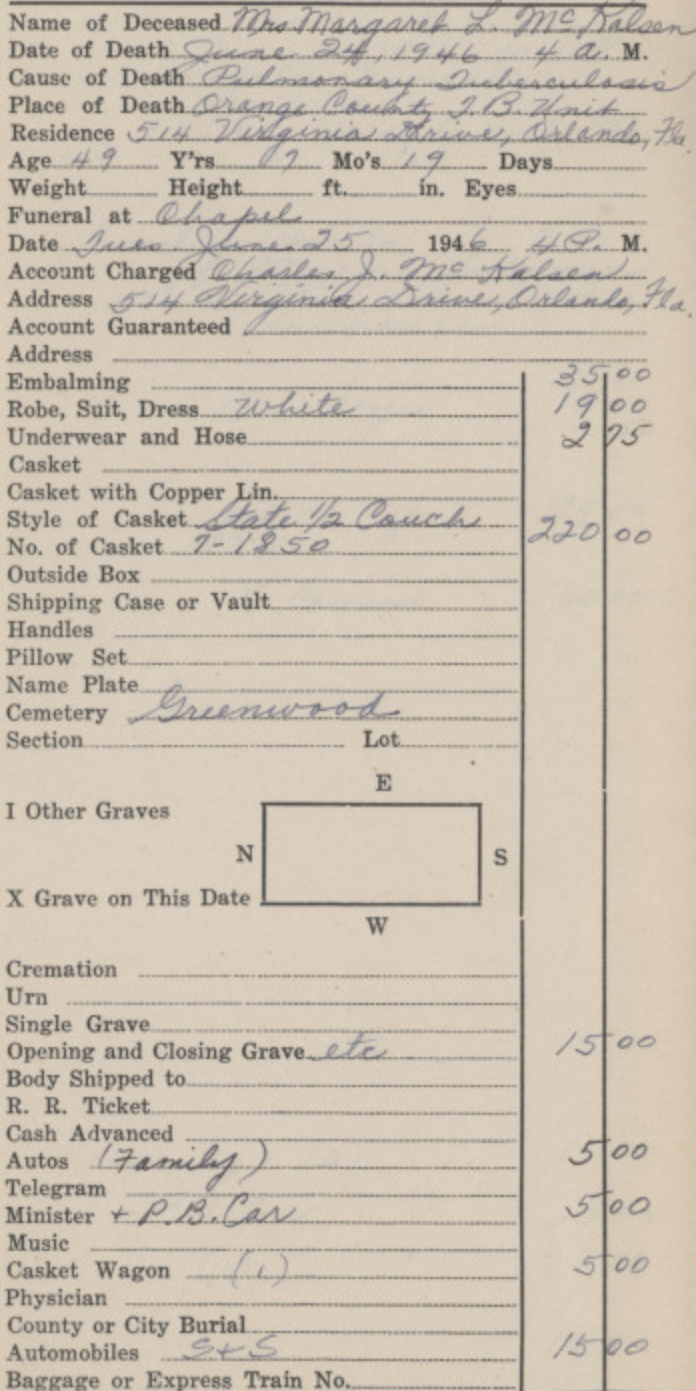 Name of Deceased Mrs Margaret L. McKalsen
Date of Death June 24, 1946 4 a. M.
Cause of Death Pulmonary Tuberculosis
Place of Death Orange County T.B. Unit
Residence 514 Virginia Drive, Orlando, Fla.
Age 49 Y'rs 7 Mo's 19 Days
Weight Height ft. in. Eyes
Funeral at Chapel
Date Tues. June 25 1946 4 P. M.
Account Charged Charles J. McKalsen
Address 514 Virginia Drive, Orlando, Fla.
Account Guaranteed
Address
Embalming 35 00
Robe, Suit, Dress White 19 00
Underwear and Hose 2 75
Casket
Casket with Copper Lin.
Style of Casket State 1/2 Couch 220 00
No. of Casket 7-1850
Outside Box
Shipping Case or Vault
Handles
Pillow Set
Name Plate
Cemetery Greenwood
Section Lot
E
I Other Graves
N S
X Grave on This Date
W
Cremation
Urn
Single Grave
Opening and Closing Grave etc 15 00
Body Shipped to
R. R. Ticket
Cash Advanced
Autos (Family) 5 00
Telegram
Minister + P.B. Car 5 00
Music
Casket Wagon (1) 5 00
Physician
County or City Burial
Automobiles S+S 15 00
Baggage or Express Train No.